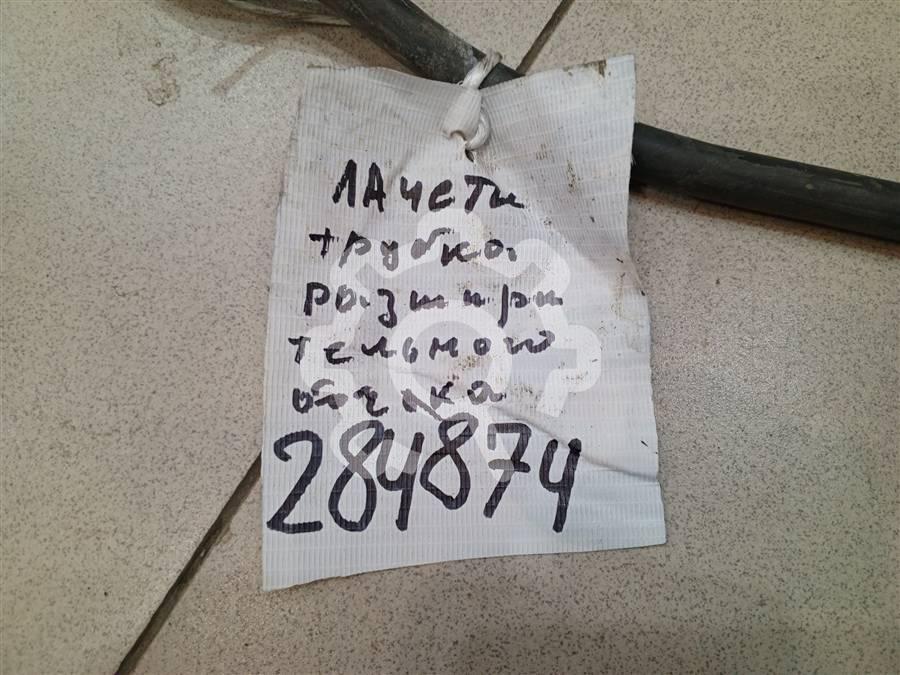 ЛАчети
трубка
розшири
тельного
бачка
284874